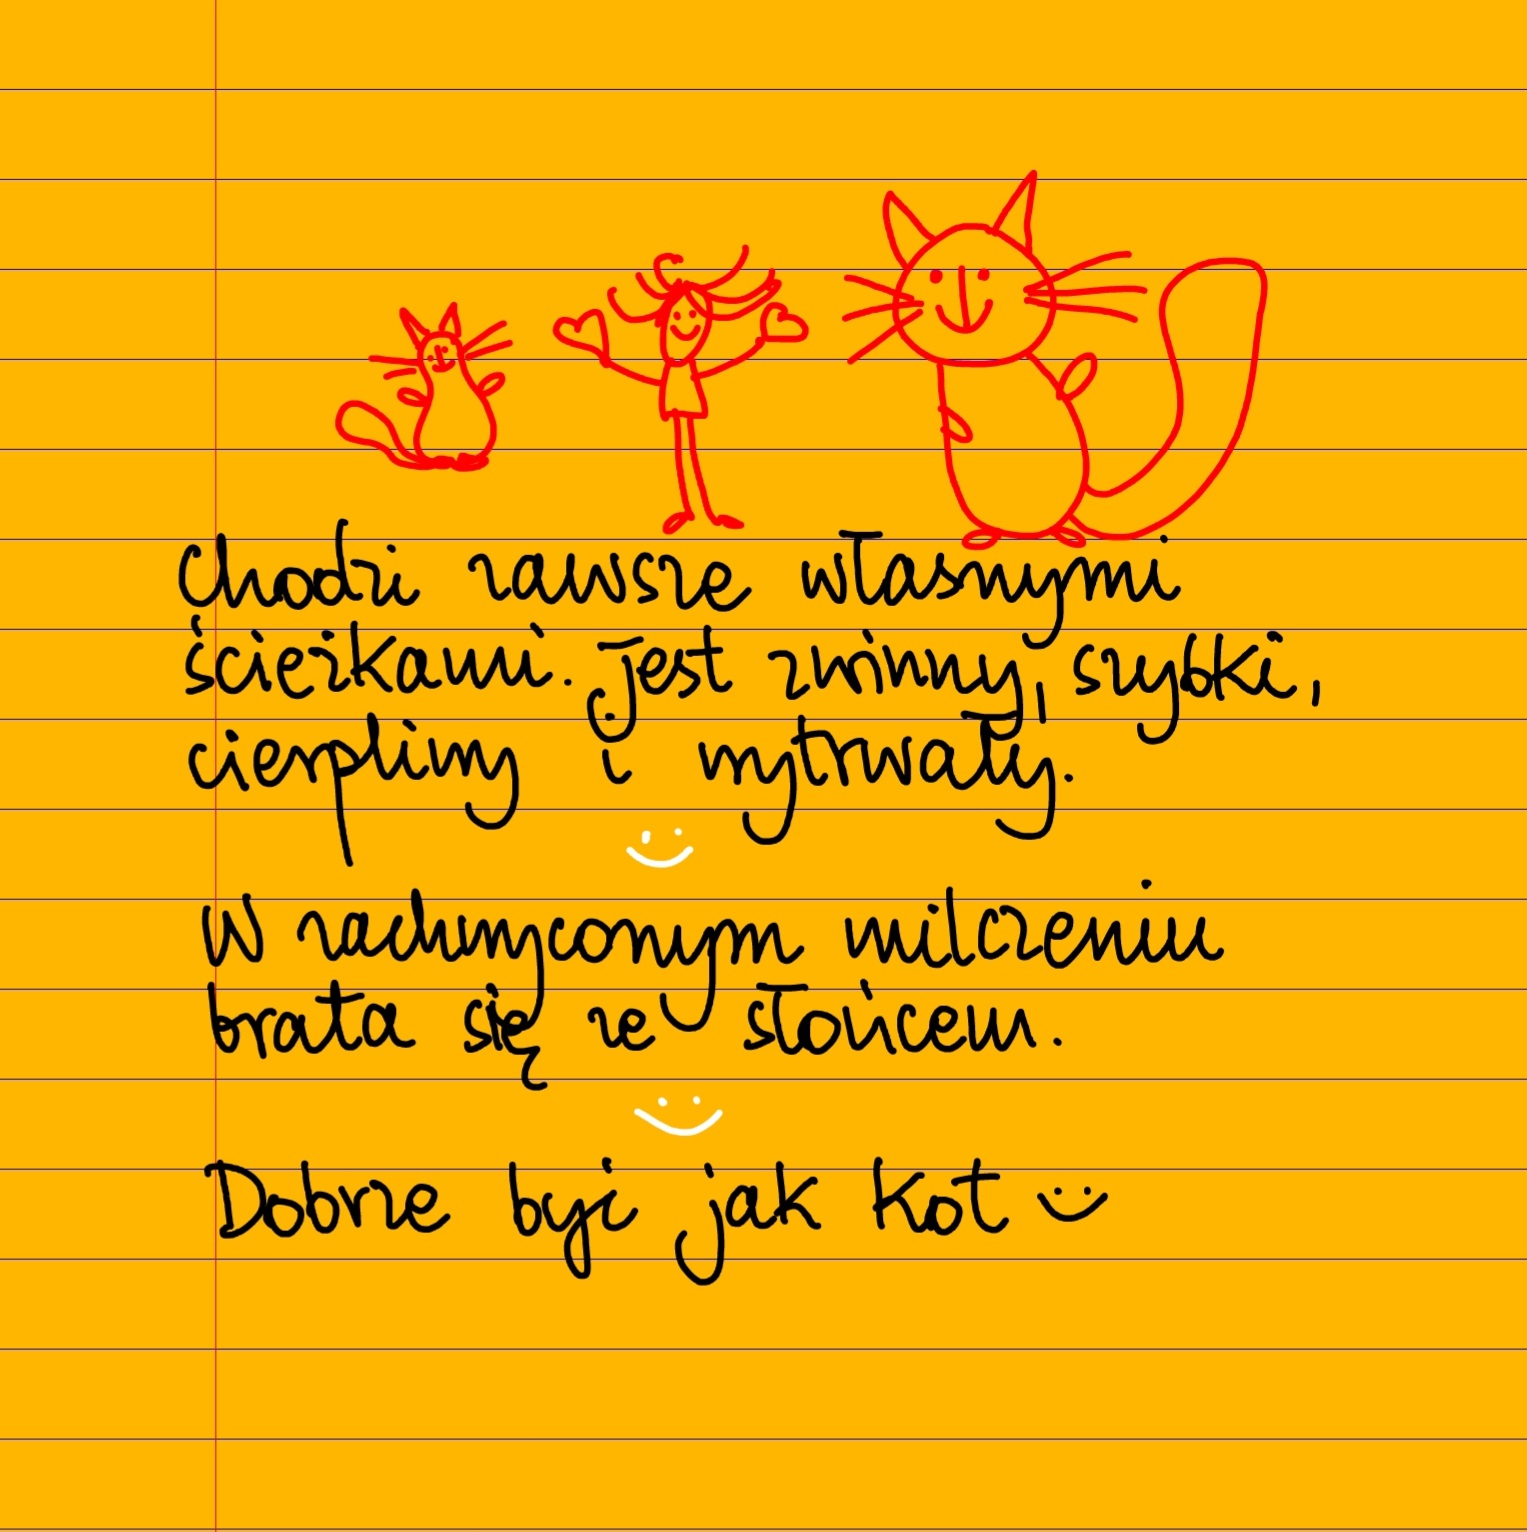 Chodzi zawsze własnymi
ścieżkami. Jest zwinny, szybki,
cierpliwy i wytrwały.
W zachwyconym milczeniu
brata się ze słońcem.
Dobrze być jak kot